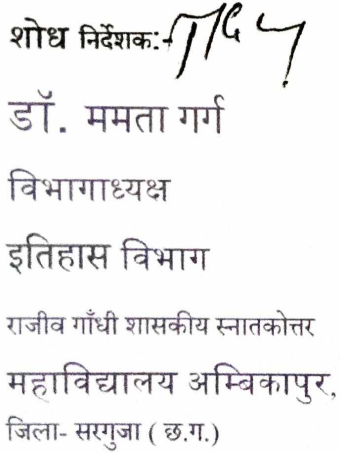 शोध निर्देशक:-
डॉ. ममता गर्ग
विभागाध्यक्ष
इतिहास विभाग
राजीव गाँधी शासकीय स्नातकोत्तर
महाविद्यालय अम्बिकापुर,
जिला- सरगुजा ( छ.ग.)